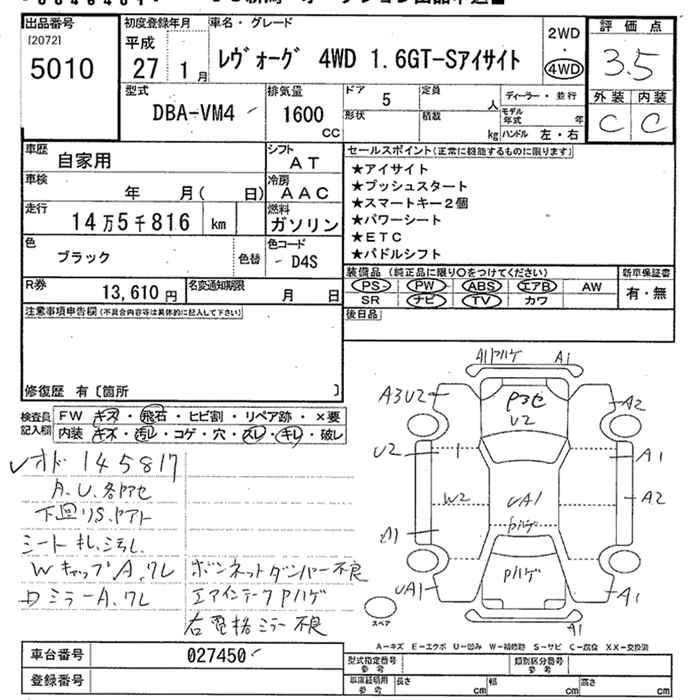 出品番号
[2072]
5010
初度登録年月
平成
27 1月
車名・グレード
レヴォーグ 4WD 1.6GT-Sアイサイト
2WD
・
4WD
評価点
3.5
外装 内装
C C
型式
DBA-VM4
排気量
1600
CC
ドア 5
形状
定員 人
積載 kg
ディーラー・並行
モデル年式 年
ハンドル 左・右
車歴
自家用
シフト
AT
車検
年 月( 日)
冷房
AAC
走行
14万5千816 km
燃料
ガソリン
色
ブラック
色替
色コード
D4S
R券
13,610円
名変通知期限
月 日
セールスポイント(正常に機能するものに限ります)
★アイサイト
★プッシュスタート
★スマートキー2個
★パワーシート
★ETC
★パドルシフト
装備品(純正品に限り○をつけてください)
新車保証書
PS PW ABS エアB AW
SR ナビ TV カワ
有・無
後日品
注意事項申告欄(不具合内容等は具体的に記入して下さい)
修復歴 有〔箇所 〕
検査員記入欄
FW キズ・飛石・ヒビ割・リペア跡・×要
内装 キズ・汚レ・コゲ・穴・スレ・キレ・破レ
オド 145817
A.U.各アセ
下回リS.アト
シートキレ、汚レ
Wキャップ A.ワレ
ミラーA.ワレ
ボンネットダンパー不良
エアインテークPハゲ
右電格ミラー不良
A1Pハゲ A1
A3U2
Pヨセ
U2
A2
U2
A1
W2
UA1
Pハゲ
A2
A1
UA1
Pハゲ
A1
A1
スペア
A-キズ E-エクボ U-凹み W-補修跡 S-サビ C-腐食 XX-交換済
車台番号
027450
登録番号
型式指定番号 参考
類別区分番号 参考
車庫証明用 参考
長さ cm 幅 cm 高さ cm